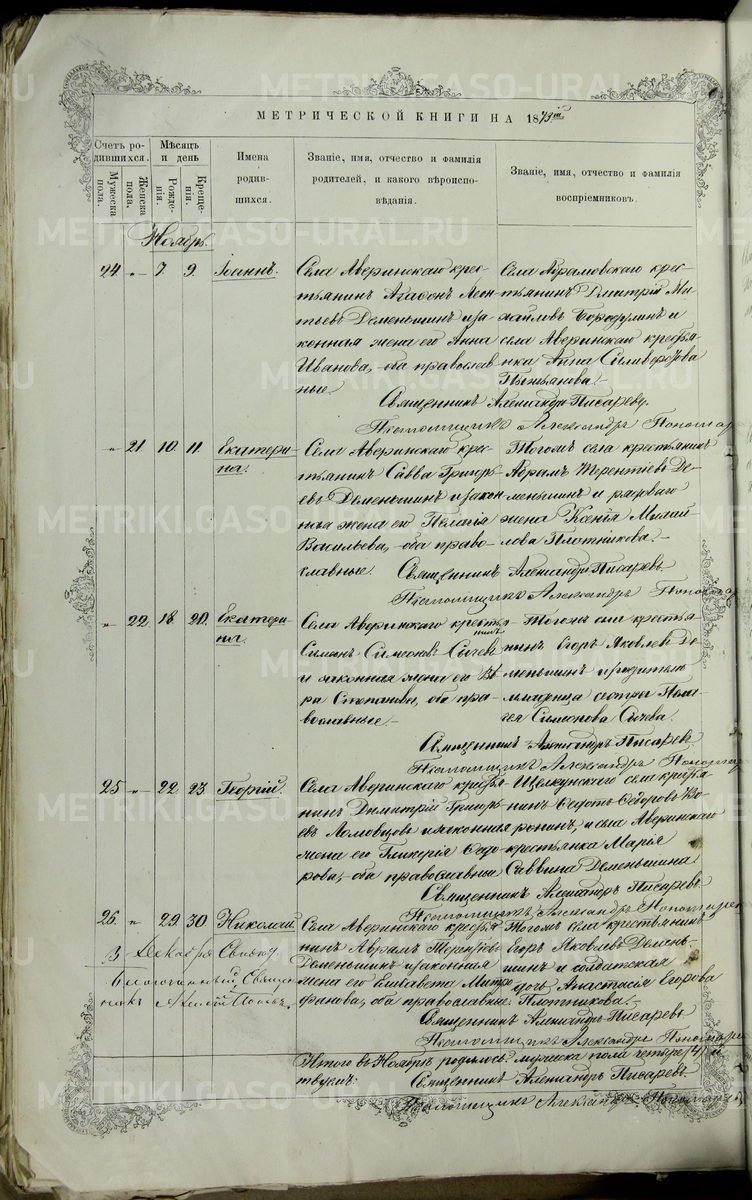 МЕТРИЧЕСКОЙ КНИГИ НА 1873
Счетъ родившихся.
Мужеска пола.
Женска пола.
Мѣсяцъ и день
Рожденія.
Крещенія.
Имена родившихся.
Званіе, имя, отчество и фамилія родителей, и какого вѣроисповѣданія.
Званіе, имя, отчество и фамилія воспріемниковъ.
Ноябрь.
24. „ 7. 9. Іоаннъ.
Села Аверинскаго крес-
тьянинъ Агафонъ Леон-
тьевъ Деменьшинъ и за-
конная жена его Анна
Иванова, оба православ-
ные.
Села Абрамовскаго крес-
тьянинъ Дмитрій Ми-
хайловъ Бородулинъ и
села Аверинскаго крестья-
нка Анна
Священникъ Александръ Писаревъ.
Псаломщикъ Александръ
„ 21. 10. 11. Екатери-
на.
Села Аверинскаго крес-
тьянинъ Савва Григорь-
евъ Деменьшинъ и закон
ная жена его Пелагія
Васильева, оба право-
славные.
Тогожъ села крестьянинъ
Абрамъ Терентьевъ Де-
меньшинъ и
жена Ксенія Михай
лова Плотникова.
Священникъ Александръ Писаревъ
Псаломщикъ Александръ
„ 22. 18. 20. Екатери-
на.
Села Аверинскаго крестья
нинъ
Симеоновъ Сычевъ
и законная жена его
ра Степанова, оба пра-
вославные.
Тогожъ села крестья
нинъ Егоръ Яковлевъ Де-
меньшинъ и родителя
младенца сестра Пела-
гея Симонова Сычева.
Священникъ Александръ Писаревъ
Псаломщикъ Александръ
25 „ 22. 23 Георгій.
Села Аверинскаго крестья-
нинъ Димитрій Григорь-
евъ Ломовцовъ и законная
жена его Гликерія Ѳедо-
рова, оба православные
Щелкунскаго села крестья-
нинъ Ѳедотъ Ѳедоровъ Во-
ронинъ, и села Аверинскаго
крестьянка Марія
Саввина Деменьшина
Священникъ Александръ Писаревъ
Псаломщикъ Александръ
26. „ 29. 30. Николай.
Села Аверинскаго крестья
нинъ Аврамъ Терентьевъ
Деменьшинъ и законная
жена его Елисавета Митро
фанова, оба православные.
Тогожъ села крестьянинъ
Егоръ Яковлевъ Демень-
шинъ и солдатская
дочь Анастасія Егорова
Плотникова.
3 Декабря
Благочинный, Священ
никъ
Священникъ Александръ Писаревъ
Псаломщикъ Александръ
Итого въ Ноябрѣ родилось: мужеска пола
Священникъ Александръ Писаревъ
Псаломщикъ Александръ
METRIKI.GASO-URAL.RU